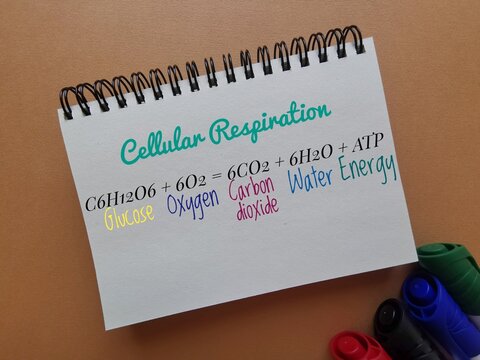 Cellular Respiration
C6H12O6 + 6O2 = 6CO2 + 6H2O + ATP
Glucose Oxygen Carbon Water Energy
dioxide